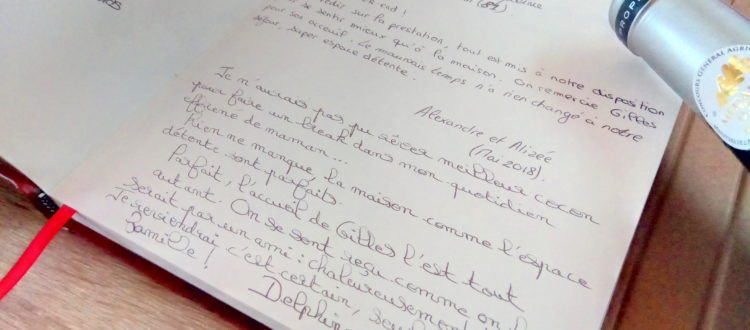 (84).
redir sur la prestation, tout est mis à notre disposition
se sentir mieux qu'à la maison. On remercie Gilles
pour son accueil. Le mauvais temps n'a rien changé à notre
séjour, super espace détente.
Alexandre et Alizée
(Mai 2018).
Je n'aurais pas pu rêver meilleur cocon
pour faire un break dans mon quotidien
effréné de maman...
Rien ne manque, la maison comme l'espace
détente sont parfaits.
Parfait, l'accueil de Gilles l'est tout
autant. On se sent reçu comme on
serait par un ami : chaleureusement
Je reviendrai c'est certain,
famille !
Delphin
PROP
CONCOURS GENERAL AGRI